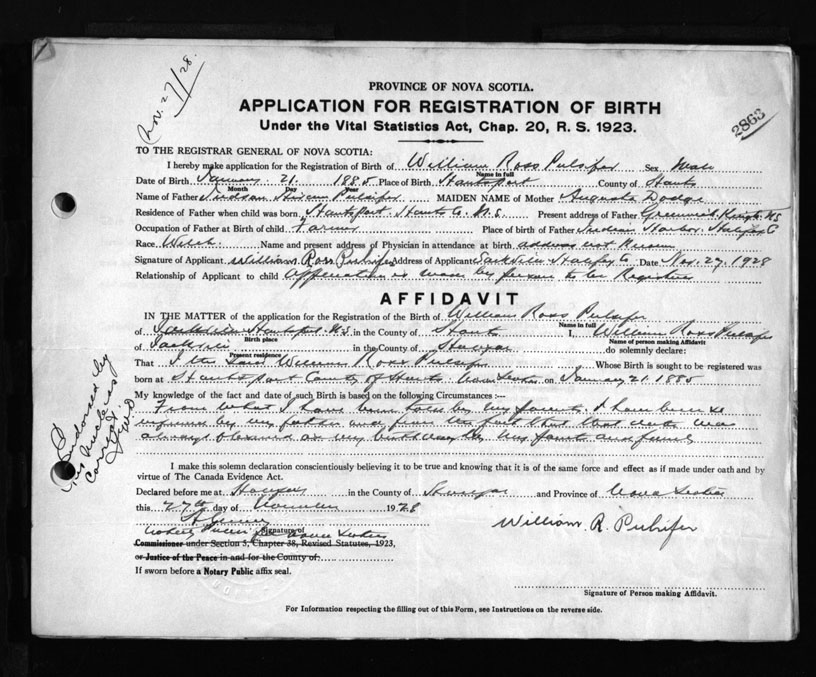 Nov. 27/28.
PROVINCE OF NOVA SCOTIA.
APPLICATION FOR REGISTRATION OF BIRTH
2863
Under the Vital Statistics Act, Chap. 20, R. S. 1923.
TO THE REGISTRAR GENERAL OF NOVA SCOTIA:
I hereby make application for the Registration of Birth of William Ross Pulsifer Sex Male
Name in full
Date of Birth January 21. 1885 Place of Birth Hantsport County of Hants
Month Day Year
Name of Father Hiram Pulsifer MAIDEN NAME of Mother Augusta Dodge
Residence of Father when child was born Hantsport. Hants Co. N.S Present address of Father Greenwich Kings NS
Occupation of Father at Birth of child Farmer Place of birth of Father Indian Harbor. Halifax Co
Race Welsh Name and present address of Physician in attendance at birth address not known
Signature of Applicant William Ross Pulsifer Address of Applicant Sackville. Halifax Co. Date Nov. 27, 1928
Relationship of Applicant to child Application is made by person to be Registered
AFFIDAVIT
IN THE MATTER of the application for the Registration of the Birth of William Ross Pulsifer
Name in full
of Hantsport. N.S in the County of Hants I, William Ross Pulsifer
Birth place Name of person making Affidavit
of Sackville in the County of Halifax do solemnly declare:
Present residence
That I the said William Ross Pulsifer Whose Birth is sought to be registered was
born at Hantsport County of Hants Nova Scotia on January 21 1885
My knowledge of the fact and date of such Birth is based on the following Circumstances :—
From what I have been told by my parents. I have been so
informed by my father and from the fact that that date was
always observed as my birthday by my parents and family
Endorsed by
correct
I make this solemn declaration conscientiously believing it to be true and knowing that it is of the same force and effect as if made under oath and by
virtue of The Canada Evidence Act.
Declared before me at Halifax in the County of Halifax and Province of Nova Scotia
this 27th day of November 1928
William R. Pulsifer
Notary Public Nova Scotia
Signature of
Commissioner under Section 5, Chapter 38, Revised Statutes, 1923,
or Justice of the Peace in and for the County of
If sworn before a Notary Public affix seal.
Signature of Person making Affidavit.
For Information respecting the filling out of this Form, see Instructions on the reverse side.